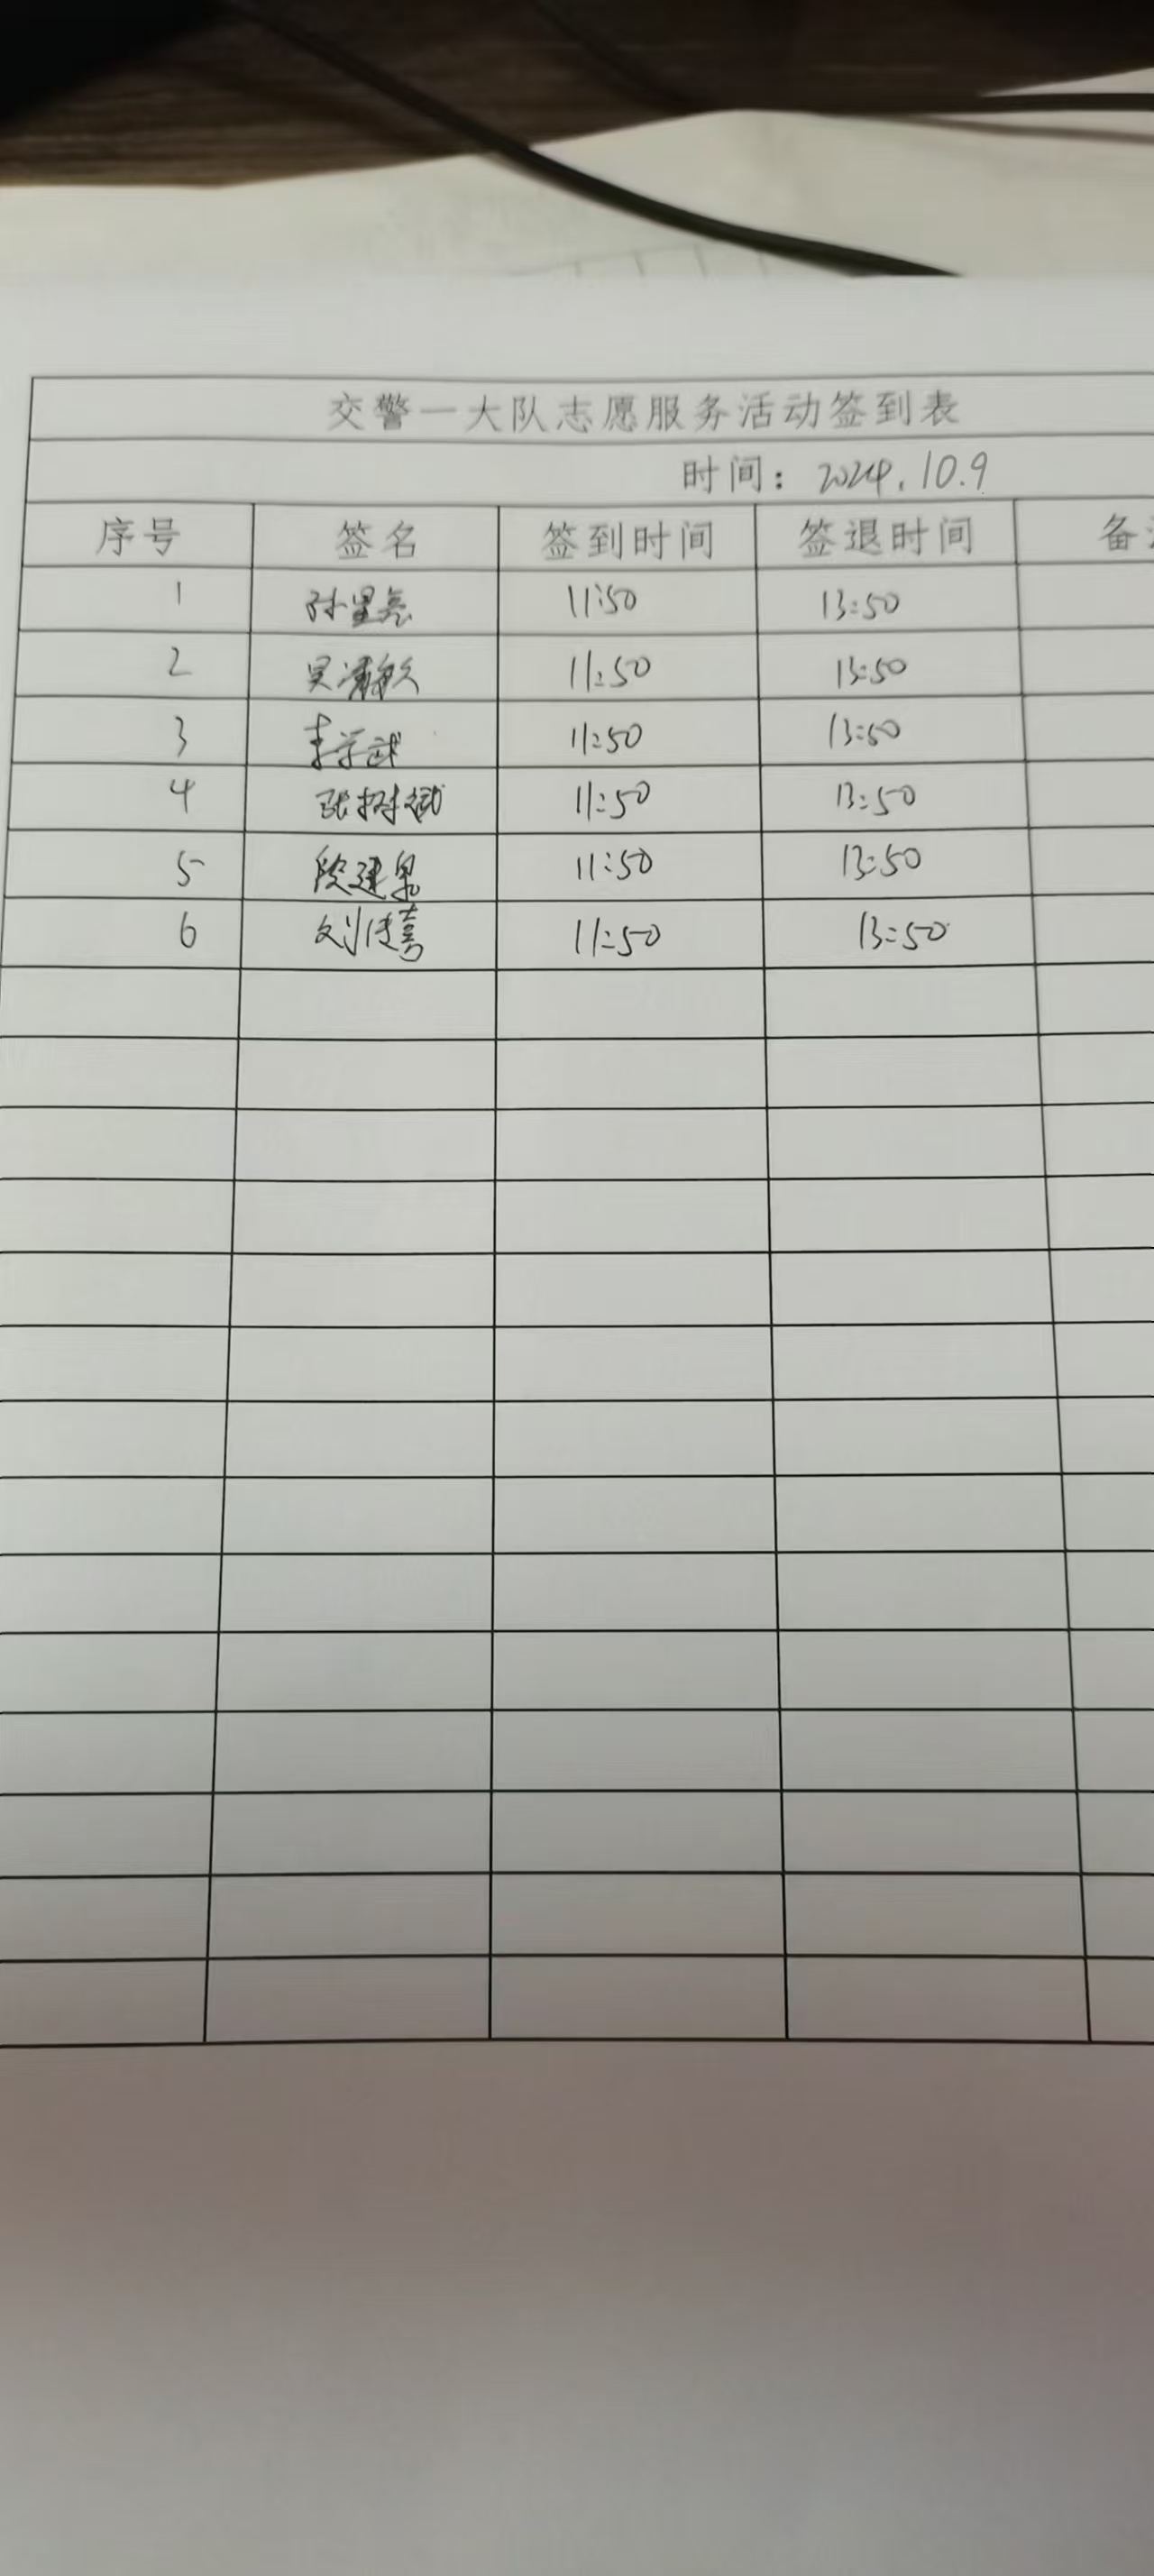 交警一大队志愿服务活动签到表
时间: 2024.10.9
序号 签名 签到时间 签退时间 备
1 11:50 13:50
2 11:50 13:50
3 李学武 11:50 13:50
4 张树斌 11:50 13:50
5 段建泉 11:50 13:50
6 刘传喜 11:50 13:50